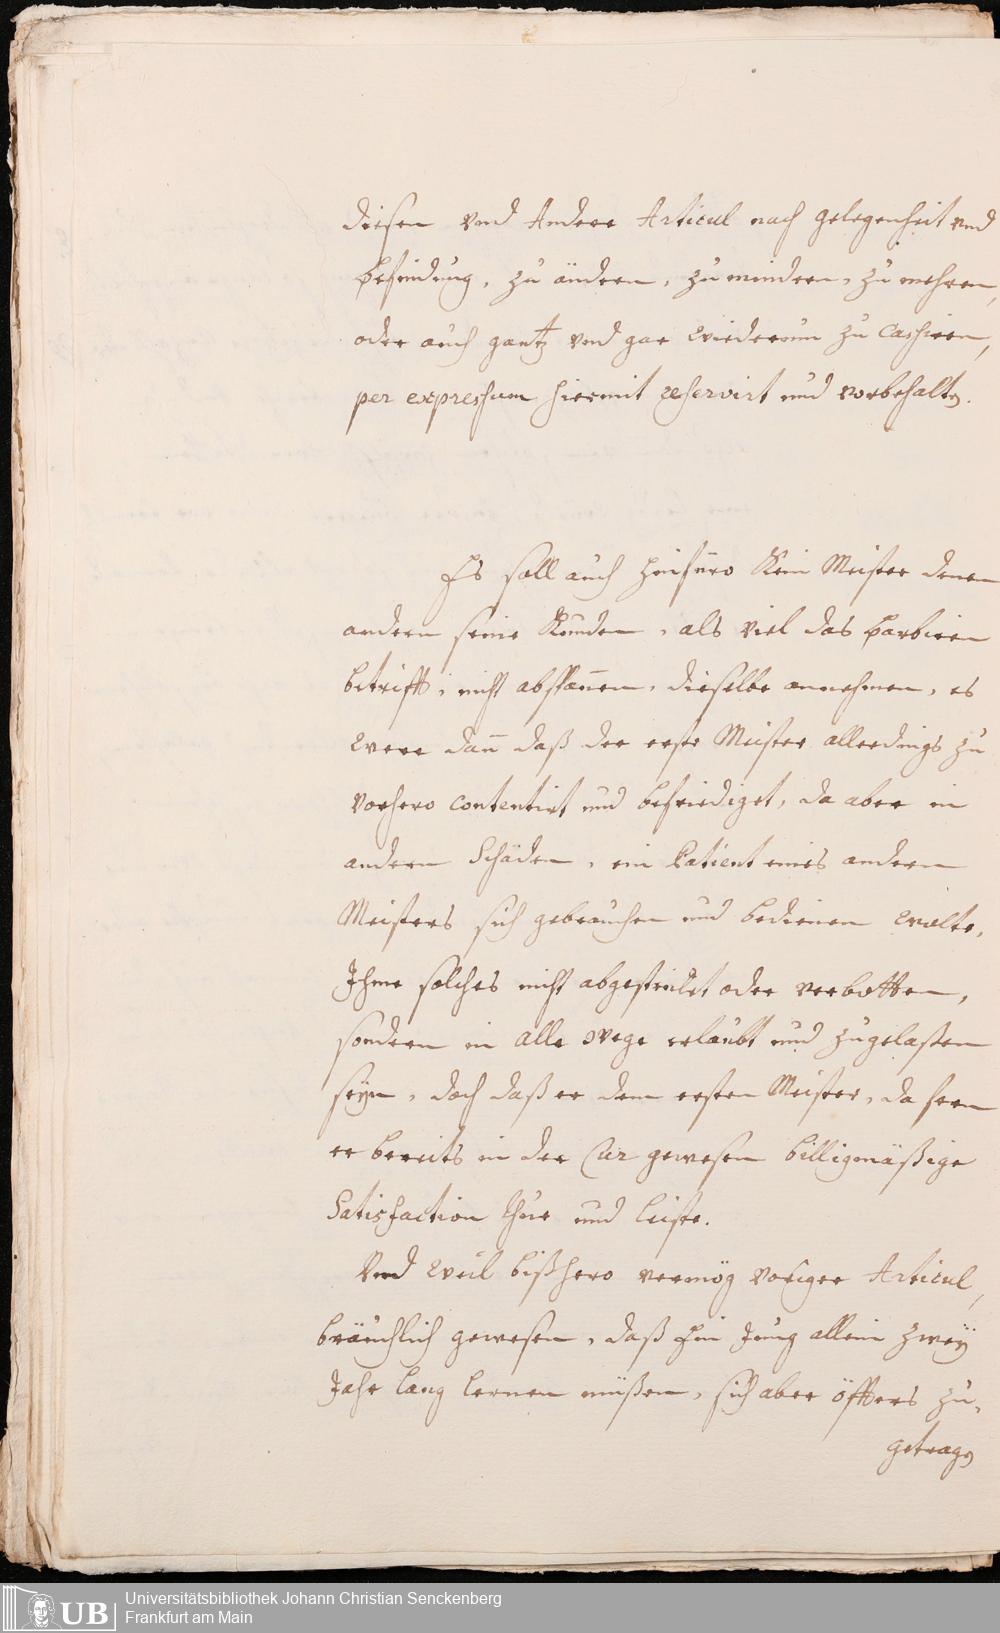 diesen vnd Andere Articul nach gelegenheit vnd
befindung, zu ändern, zu mindern, zu mehren,
oder auch gantz vnd gar wiederumb zu Cassiren,
per expressum hiermit reservirt und vorbehalten.
Es soll auch hinfüro Kein Meister denen
andern seine Kunden, als viel das barbiren
betrifft, nicht abspannen, dieselbe annehmen, es
were dann daß der erste Meister allerdings zu
vorhero contentirt und befriediget, da aber in
andern Schäden, ein Patient eines andern
Meisters sich gebrauchen und bedienen wolte,
Ihme solches nicht abgestrickt oder verbotten,
sondern in alle wege erlaubt und zugelaßen
seyn, doch daß er dem ersten Meister, da fern
er bereits in der Cur gewesen billigmäßige
Satisfaction thue und leiste.
Vnd weil bißhero vermög voriger Articul,
bräuchlich gewesen, daß Ein Jung allein zwey
Jahr lang lernen müßen, sich aber öffters zu-
getragen
Universitätsbibliothek Johann Christian Senckenberg
Frankfurt am Main
UB